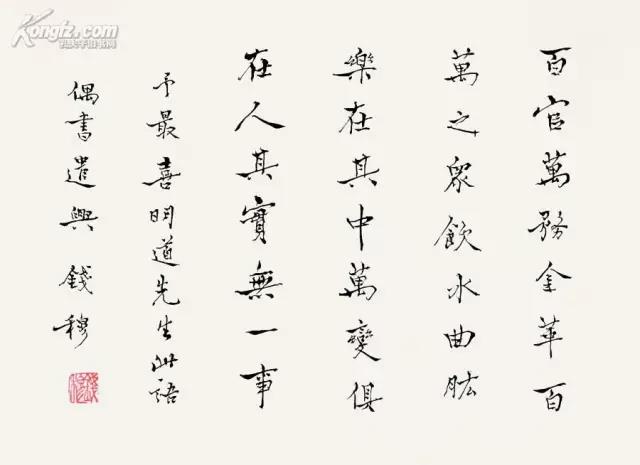 百官萬務金革百
萬之眾飲水曲肱
樂在其中萬變俱
在人其實無一事
予最喜明道先生此語
偶書遣興 錢穆
Kongfz.com
孔夫子旧书网